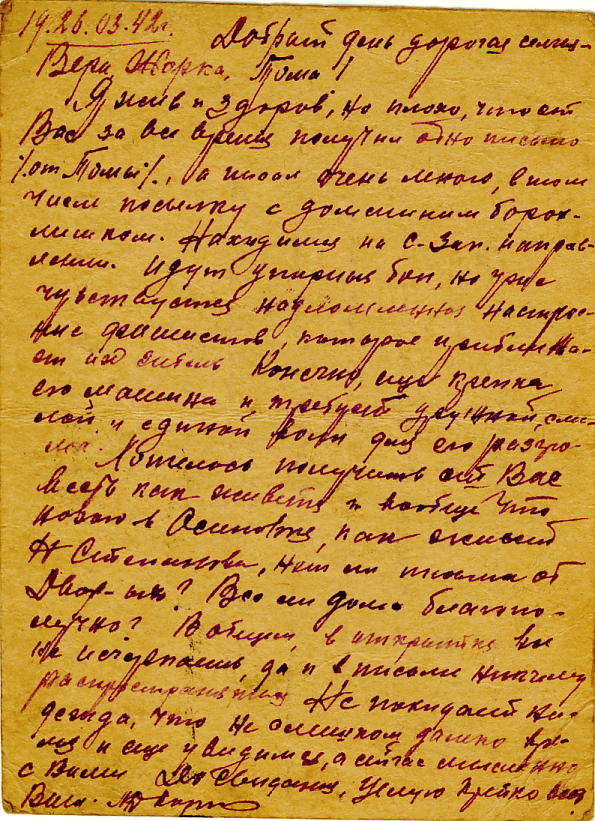 19.26.03.42г. Добрый день дорогая семья-
Вера, Жорка, Тома!
Я жив и здоров, но плохо, что от
Вас за все время получил одно письмо
/от Томы/, а писал очень много, в том
числе посылку с домашним борох-
лишком. Находимся на С-Зап. направ-
лении. Идут упорные бои, но уже
чувствуется надломленное настрое-
ние фашистов, которое приближа-
ет их гибель Конечно, еще крепка
его машина и требует дружной,
и единой воли для его разгро-
ма. Хотелось получить от Вас
весть как живете и вообще что
нового в Осиновке, как живет
Н Степанова, нет ли письма от
Двор- ? Все ли дома благопо-
лучно? В общем, в открытке все
не исчерпаешь, да и в письме
Не покидает на-
дежда, что не слишком далеко вре-
мя и еще увидимся, а сейчас мысленно
с Вами До свидания, целую крепко всех
Ваш.